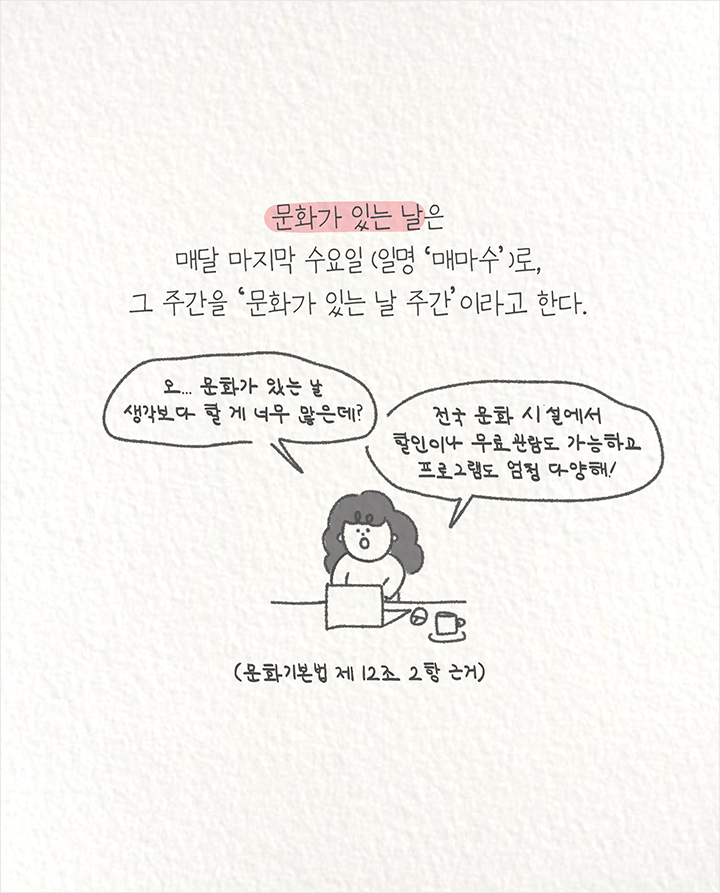 문화가 있는 날은
매달 마지막 수요일 (일명 ‘매마수’)로,
그 주간을 ‘문화가 있는 날 주간’이라고 한다.
오... 문화가 있는 날
생각보다 할 게 너무 많은데?
전국 문화 시설에서
할인이나 무료관람도 가능하고
프로그램도 엄청 다양해!
(문화기본법 제 12조 2항 근거)